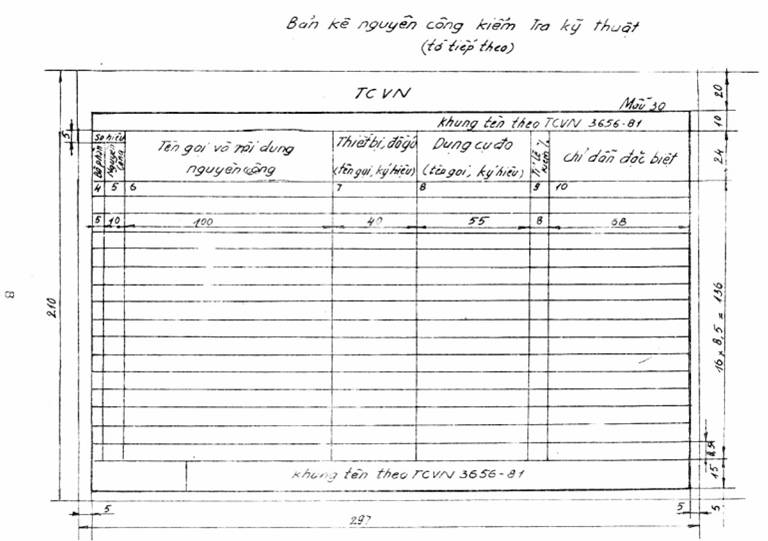 Bản kê nguyên công kiểm Tra kỹ thuật
(tờ tiếp theo)
TCVN
Mẫu 3a
khung tên theo TCVN 3656-81
Số hiệu
Bộ phận
Nguyên công
Tên gọi và nội dung nguyên công
Thiết bị, đồ gá
(tên gọi, ký hiệu)
Dụng cụ đo
(tên gọi, ký hiệu)
chỉ dẫn đặc biệt
4 5 6 7 8 9 10
5 10 100 40 55 8 68
khung tên theo TCVN 3656-81
5
210
8
20
10
24
16 x 8,5 = 136
8,5
15
5
5
5
297